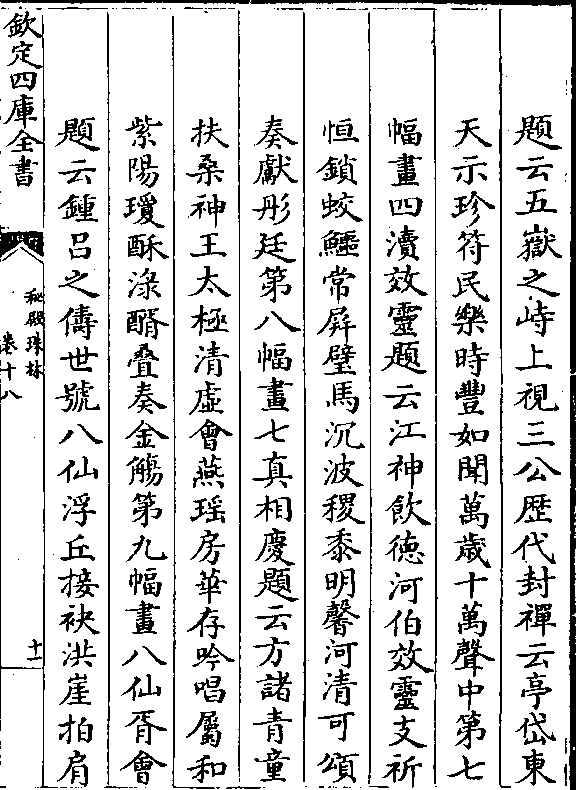 題云五嶽之峙上視三公歴代封禪云亭岱東
天示珍符民樂時豐如聞萬歳十萬聲中第七
幅畫四瀆效靈題云江神飲德河伯效靈支祈
恒鎖蛟鱷常屏璧馬沉波稷黍明馨河清可頌
奏獻彤廷第八幅畫七真相慶題云方諸青童
扶桑神王太極清虛會燕瑶房華存吟唱屬和
紫陽瓊酥淥醑叠奏金觴第九幅畫八仙胥會
題云鍾吕之儔世號八仙浮丘接袂洪崖拍肩
欽定四庫全書
秘殿珠林
卷十八
十一